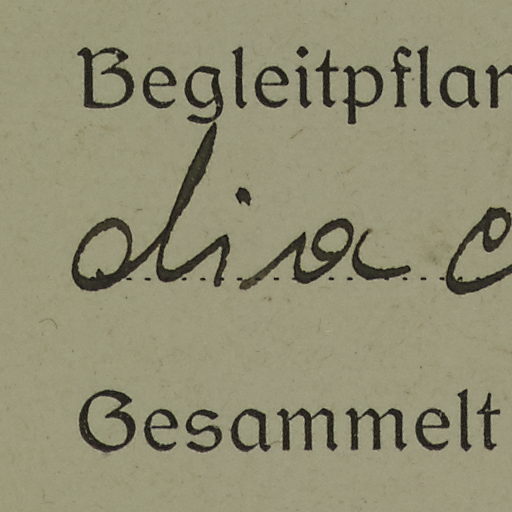 Begleitpflan
dia c
Gesammelt